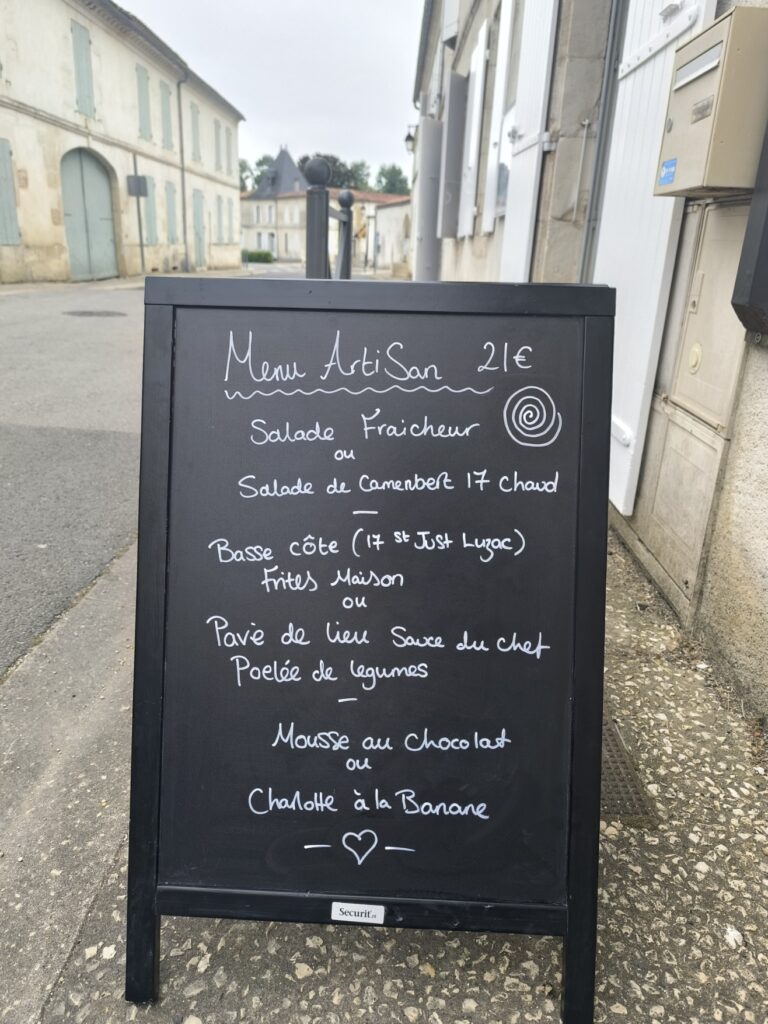 Menu ArtiSan 21€
Salade Fraicheur
ou
Salade de Camenbert 17 Chaud
Basse côte (17 st Just Luzac)
Frites Maison
ou
Pavè de lieu Sauce du chef
Poelée de legumes
Mousse au chocolat
ou
Charlotte à la Banane
Securit